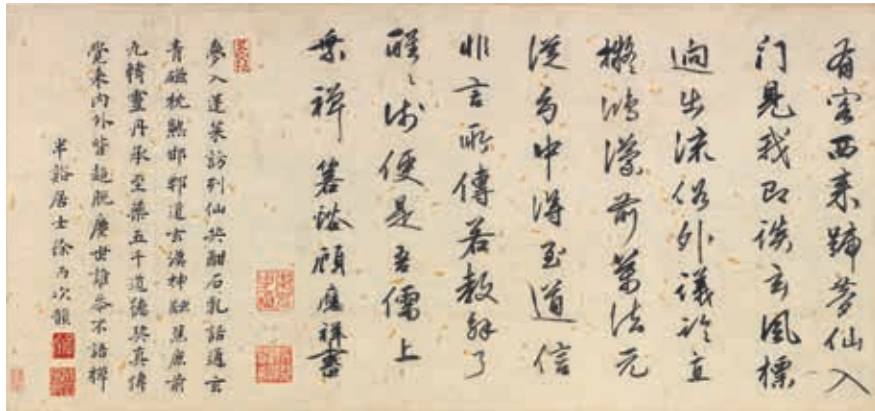 有客西来夢仙入
门見我即談玄風標
迥出流俗外議論直
擬鴻濛前萬法元
從中得至道信
非言所傳若教解了
醒〻便是吾儒上
乘禪 箬谿顧應祥書
夢入蓬萊訪列仙共酣石乳話通玄
青磁枕熟邯鄲道玄漠神融前
九轉靈丹承至藥五千道德契真傳
覺来内外皆超脱塵世誰參不語禪
半谿居士徐丙次韻